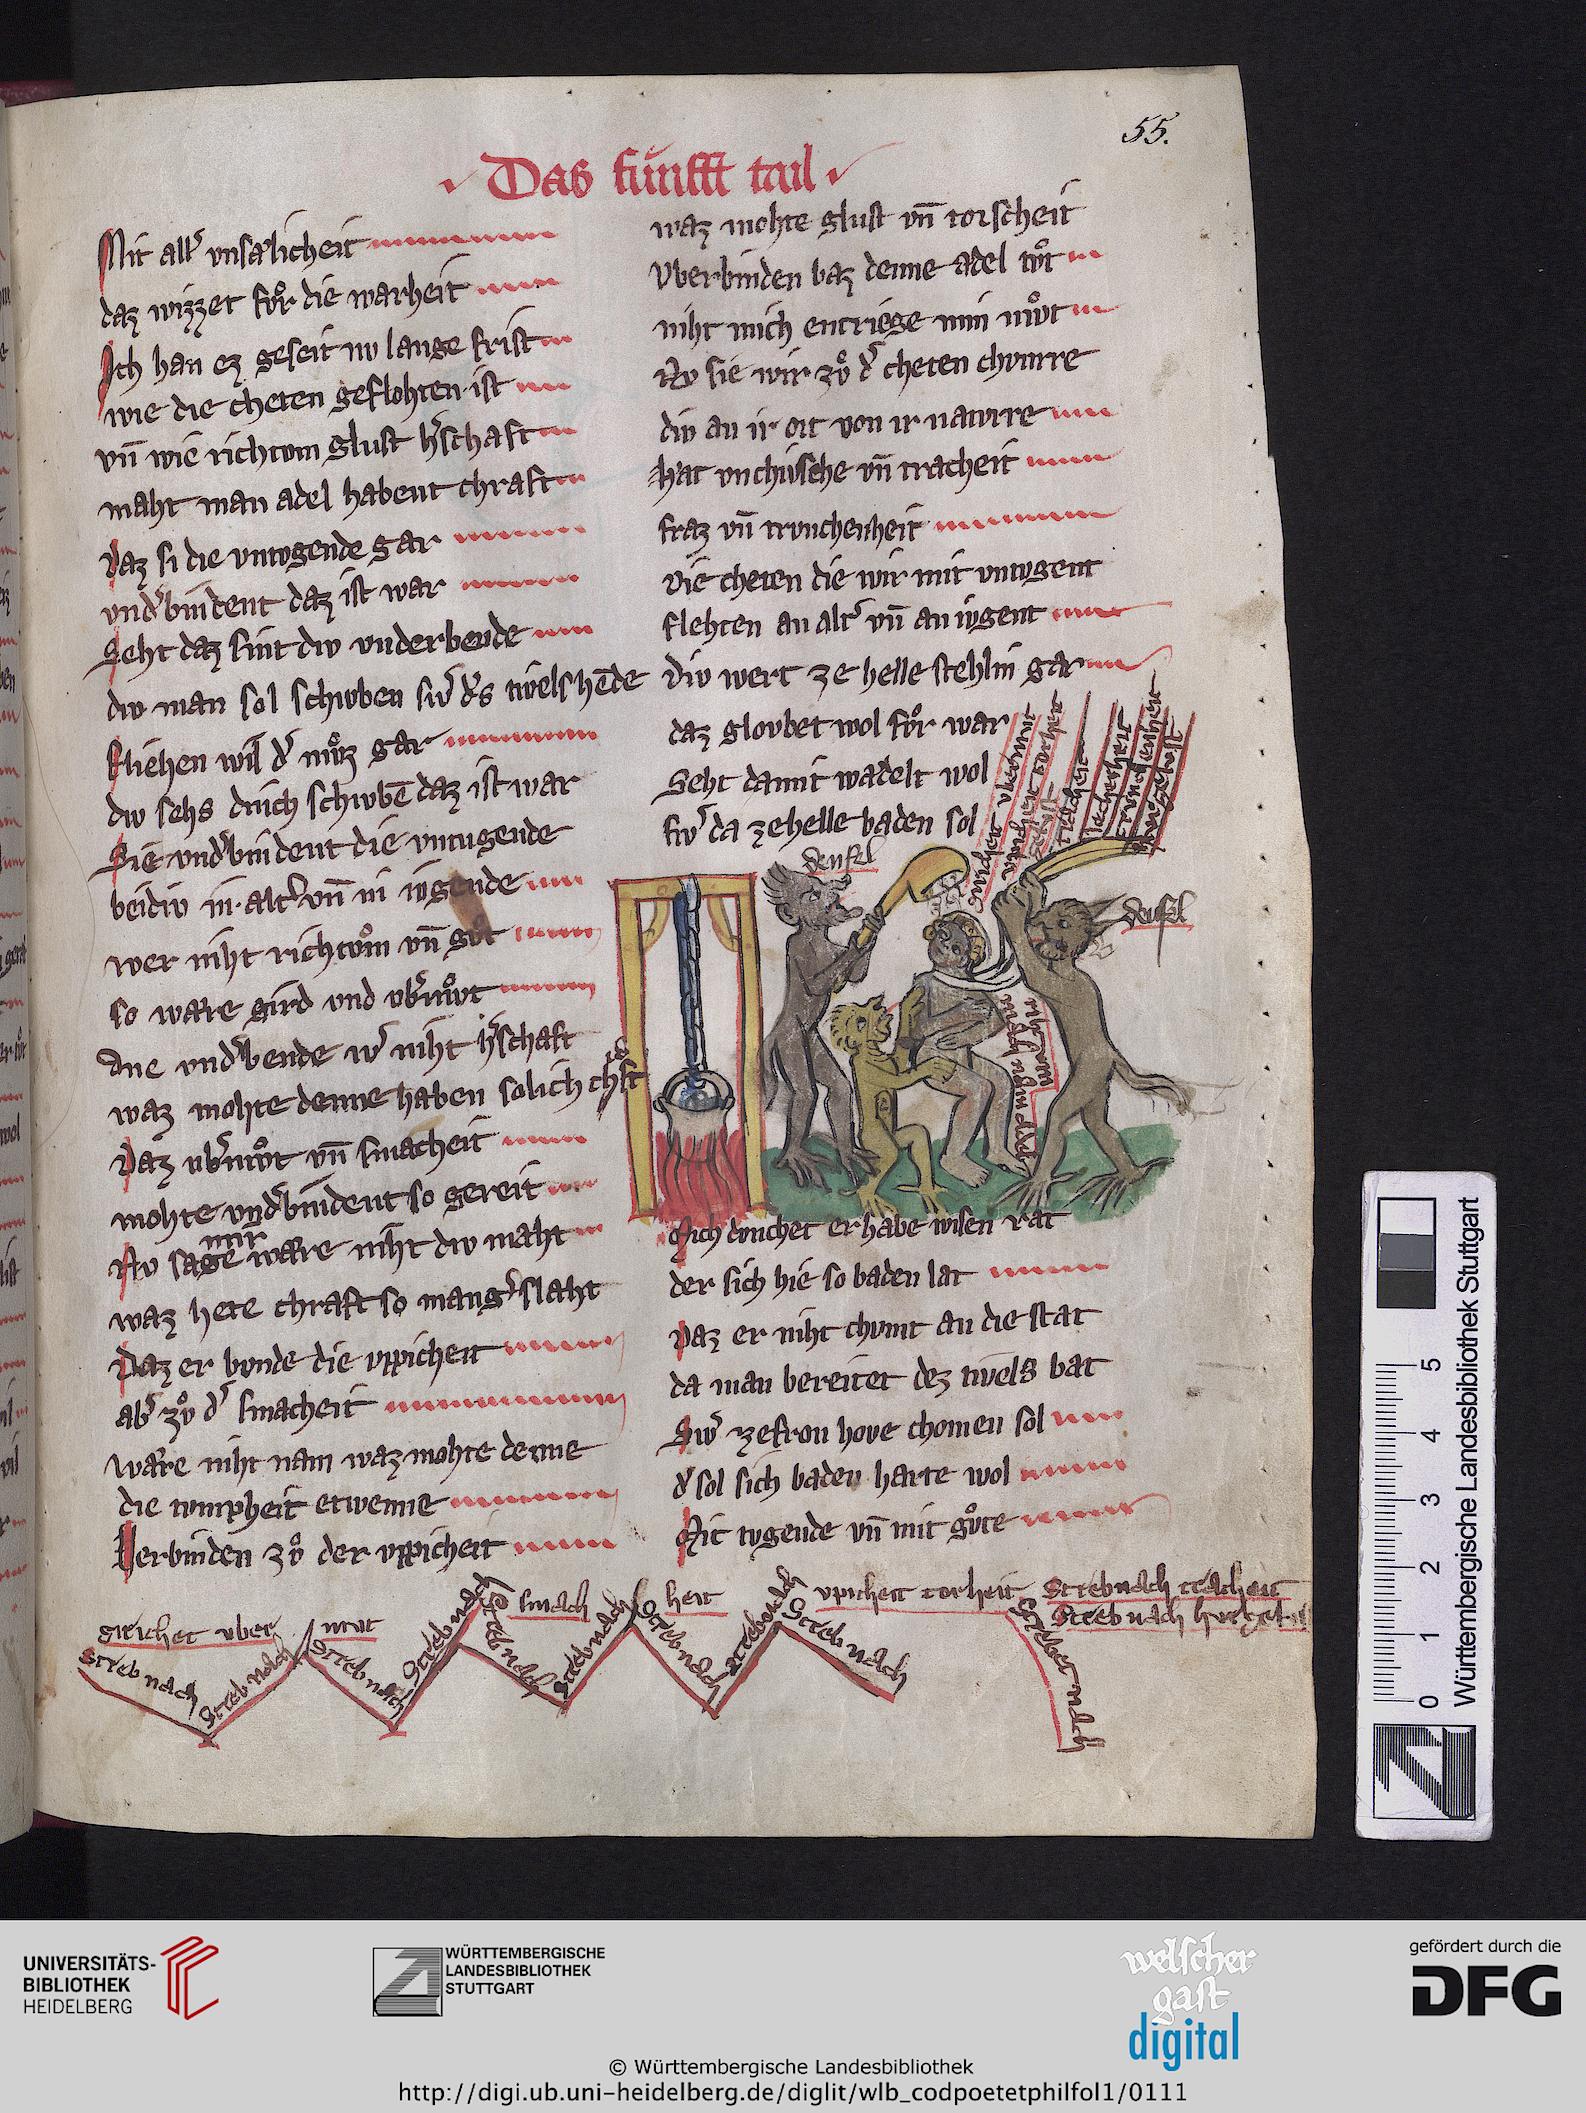 55.
Das fu̍nfft tail
Mit all' vnsælicheit
daz wizzet fuͦr die warheit
Ich han ez geseit nv lange frist
wie die cheten geflohten ist
vn̄ wie richtom glust h'schaft
maht man adel habent chraft
Daz si die vntvgende gar
vnd'bindent daz ist war
Seht daz sint div vnderbende
div man sol schivben sw' d's tivels hēde
fliehen wil d' muͦz gar
div sehs durch schivbē daz ist war
Sie vnd'bindent die vntugende
beidiv in alt' vn̄ in ivgende
wer niht richtuͦm vn̄ guͦt
so wære gird vnd vb'muͦt
Ane vnd'bende w' niht h'schaft
waz mohte denne haben solich chͣft
Daz vb'muͦt vn̄ smacheit
mohte vnd'bindent so gereit
mir
Nv sage wære niht div maht
waz hete chraft so mang' slaht
Daz er bvnde die vppicheit
ab' zuͦ d' smacheit
wære niht nam waz mohte denne
die tvmpheit etwenne
Verbinden zuͦ der vppicheit
waz mohte glust vn̄ torscheit
Vberbinden baz denne adel tuͦt
niht mich entriege min muͦt
Nv sie wir zuͦ d' cheten chvmre
div an ir ort von ir natvrre
Hat vnchivsche vn̄ tracheit
fraz vn̄ trvnchenheit
Die cheten die wir mit vntvgent
flehten an alt' vn̄ an ivgent
Div wert ze helle stehlin gar
daz glovbet wol fuͦr war
Seht damit wadelt wol
sw' da zehelle baden sol
deufel
deufel
Mich dvnchet er habe wisen rat
der sich hie so baden lat
Daz er niht chvmt an die stat
da man bereitet dez tivels bat
Sw' zefron hove chomen sol
d' sol sich baden harte wol
Mit tvgende vn̄ mit guͦte
girichet vber mvt smach heit vpicheit torheit Streb nach tracheit
Streb nach
Streb nach
Streb nach
Streb nach
Streb nach
Streb nach
Streb nach
Streb nach
Streb nach
Strebet nach
Württembergische Landesbibliothek Stuttgart
0 1 2 3 4 5
UNIVERSITÄTS-
BIBLIOTHEK
HEIDELBERG
WÜRTTEMBERGISCHE
LANDESBIBLIOTHEK
STUTTGART
welscher
gast
digital
gefördert durch die
DFG
© Württembergische Landesbibliothek
http://digi.ub.uni-heidelberg.de/diglit/wlb_codpoetetphilfol1/0111